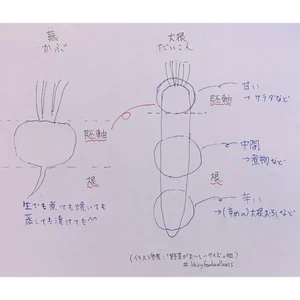 蕪
かぶ
大根
だいこん
胚軸
根
生でも煮ても焼いても
蒸しても漬けても^^
胚軸
根
甘い
→サラダなど
中間
→煮物など
辛い
→(辛めの)大根おろしなど
(イラスト参考："野菜がおいしいクイズ"他)